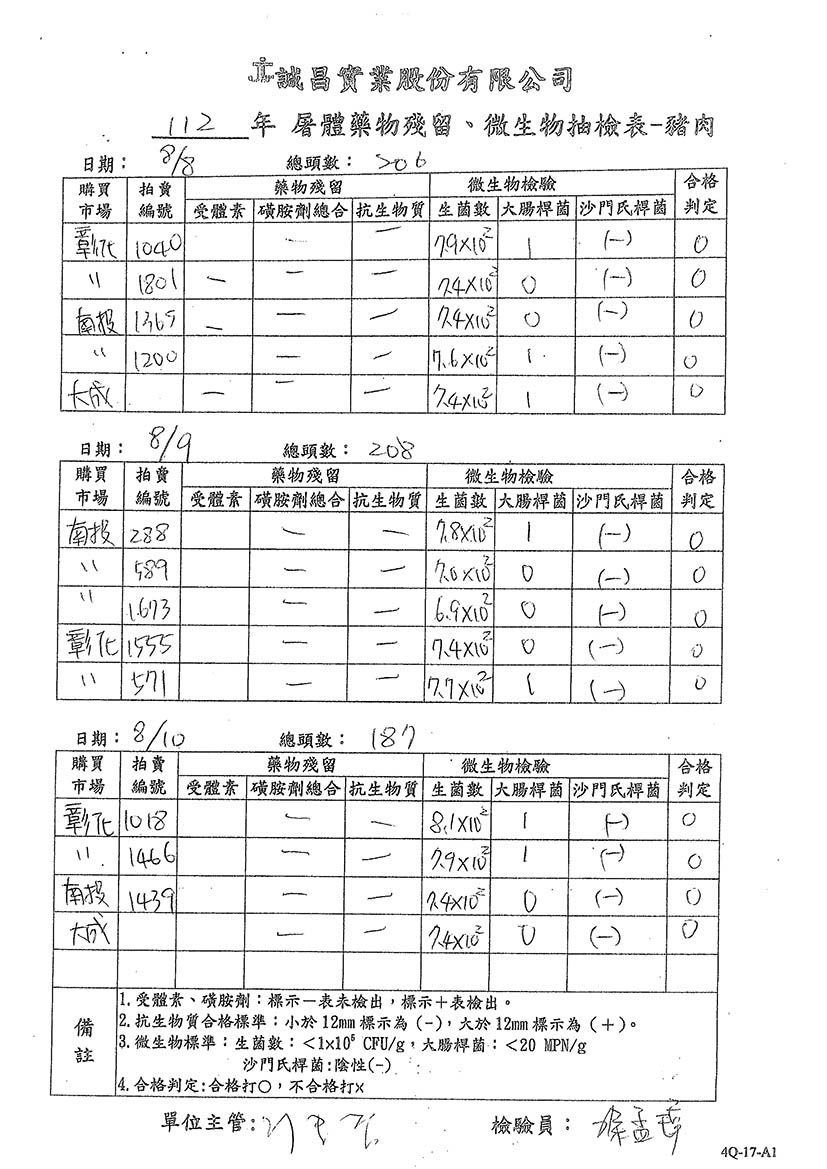 誠昌實業股份有限公司
112 年 屠體藥物殘留、微生物抽檢表-豬肉
日期： 8/8 總頭數： 206
購買市場 拍賣編號 藥物殘留 微生物檢驗 合格判定
受體素 磺胺劑總合 抗生物質 生菌數 大腸桿菌 沙門氏桿菌
彰化 1040 — — 7.9×10² 1 (—) O
〃 1801 — — — 7.4×10² 0 (—) O
南投 1365 — — — 7.4×10² 0 (—) O
〃 1200 — — 7.6×10² 1 (—) O
大成 — — — 7.4×10² 1 (—) O
日期： 8/9 總頭數： 208
購買市場 拍賣編號 藥物殘留 微生物檢驗 合格判定
受體素 磺胺劑總合 抗生物質 生菌數 大腸桿菌 沙門氏桿菌
南投 288 — — 7.8×10² 1 (—) O
〃 589 — — 7.0×10² 0 (—) O
〃 1673 — — 6.9×10² 0 (—) O
彰化 1555 — — 7.4×10² 0 (—) O
〃 571 — — 7.7×10² 1 (—) O
日期： 8/10 總頭數： 187
購買市場 拍賣編號 藥物殘留 微生物檢驗 合格判定
受體素 磺胺劑總合 抗生物質 生菌數 大腸桿菌 沙門氏桿菌
彰化 1018 — — 8.1×10² 1 (—) O
〃 1466 — — 7.9×10² 1 (—) O
南投 1439 — — 7.4×10² 0 (—) O
大成 — — 7.4×10² 0 (—) O
備註
1.受體素、磺胺劑：標示一表未檢出，標示＋表檢出。
2.抗生物質合格標準：小於12mm標示為（-），大於12mm標示為（＋）。
3.微生物標準：生菌數：<1x10⁵ CFU/g，大腸桿菌：<20 MPN/g
沙門氏桿菌:陰性(-)
4.合格判定:合格打○，不合格打x
單位主管: 檢驗員：
4Q-17-A1